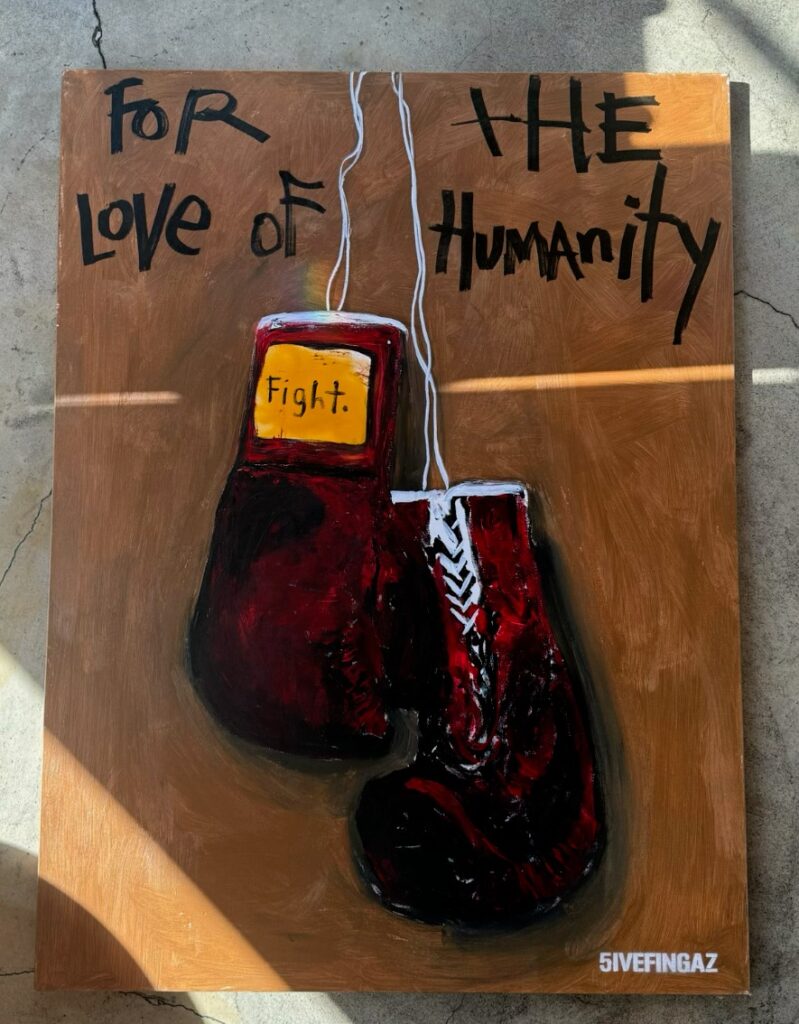 FOR THE
LOVE OF HUMANITY
Fight.
5IVEFINGAZ